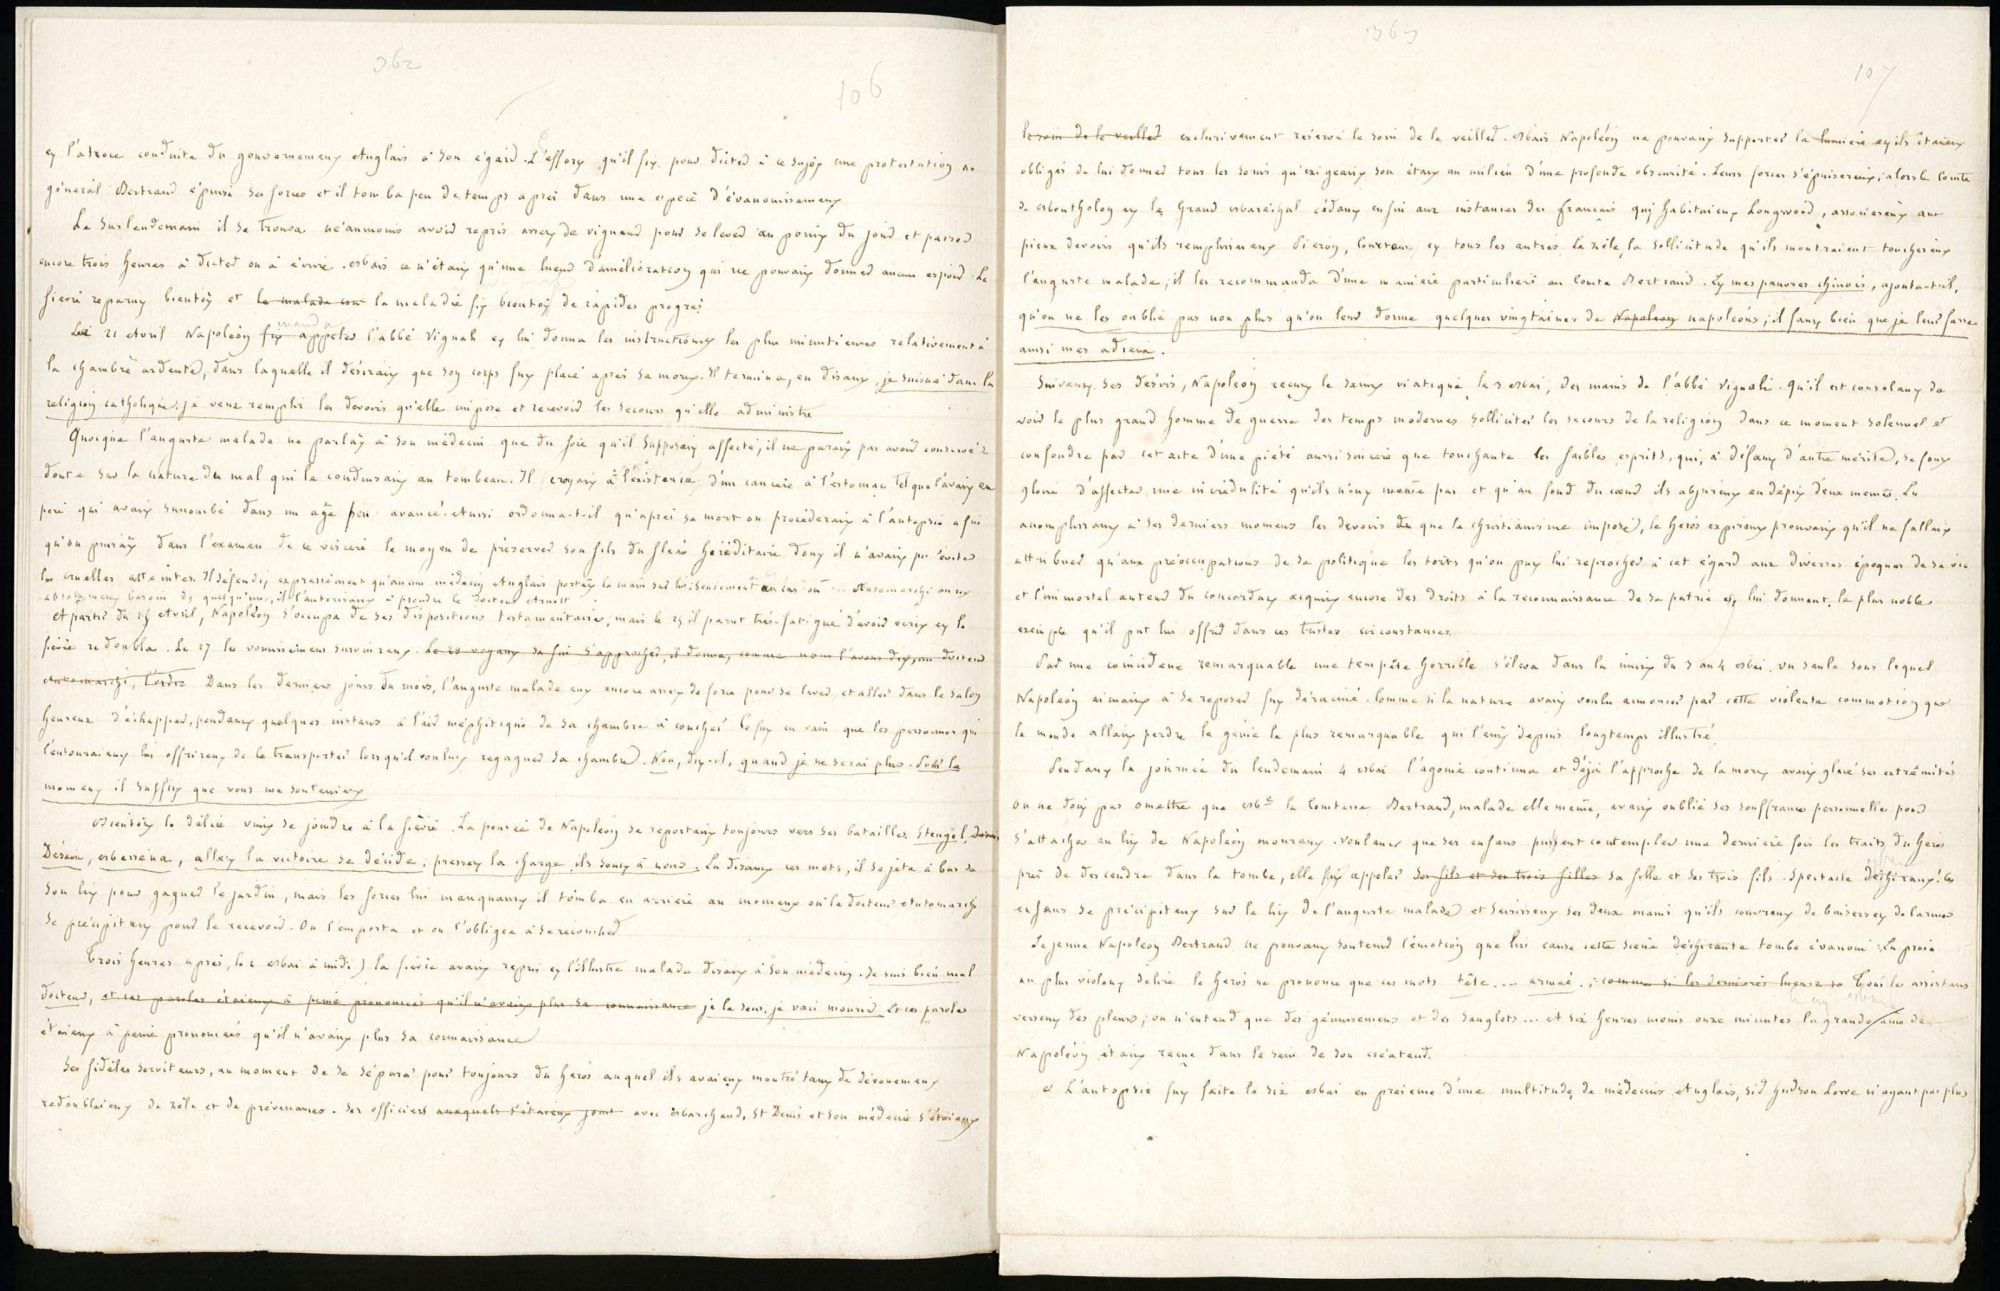 362
106
et l'atroce conduite du gouvernement Anglais à son égard. L'effort qu'il fit pour dicter à ce sujet une protestation au
général Bertrand épuisa ses forces et il tomba peu de temps après dans une espèce d'évanouissement
Le surlendemain il se trouva néanmoins avoir repris assez de vigueur pour se lever au point du jour et passer
encore trois heures à dicter ou à écrire. Mais ce n'était qu'une lueur d'amélioration qui ne pouvait donner aucun espoir. La
fièvre reparut bientôt et la maladie fit bientôt de rapides progrès
Le 21 Avril Napoléon manda
fit appeler l'abbé Vignali et lui donna les instructions les plus minutieuses relativement à
la chambre ardente, dans laquelle il désirait que son corps fut placé après sa mort. Il termina, en disant, je suis né dans la
religion catholique. je veux remplir les devoirs qu'elle impose et recevoir les secours qu'elle administre
Quoique l'auguste malade ne parlât à son médecin que du foie qu'il supposait affecté, il ne parait pas avoir conservé de
doute sur la nature du mal qui le conduisait au tombeau. Il croyait à l'existence d'un cancer à l'estomac tel que l'avait eu
père qui avait succombé dans un âge peu avancé. Aussi ordonna-t-il qu'après sa mort on procéderait à l'autopsie afin
qu'on puisât dans l'examen de ce viscère le moyen de préserver son fils du fléau héréditaire dont il n'avait pu éviter
les cruelles atteintes. Il défendit expressément qu'aucun médecin Anglais portât la main sur lui; seulement au cas où Antomarchi aurait
absolument besoin de quelqu'un, il l'autorisait à prendre le docteur Arnott
A partir du 15 Avril, Napoléon s'occupa de ses dispositions testamentaires, mais le 25 il parut très-fatigué d'avoir écrit et la
fièvre redoubla. Le 27 les vomissemens survinrent. Le 28 voyant sa fin s'approcher, il donna, comme nous l'avons dit, au docteur
Antomarchi, l'ordre Dans les derniers jours du mois, l'auguste malade eut encore assez de force pour se lever et aller dans le salon
heureux d'échapper, pendant quelques instans à l'air méphitique de sa chambre à coucher. Ce fut en vain que les personnes qui
l'entouraient lui offrirent de le transporter lorsqu'il voulut regagner sa chambre. Non, dit-il, quand je ne serai plus. Pour le
moment il suffit que vous me souteniez
Bientôt le délire vint se joindre à la fièvre. La pensée de Napoléon se reportait toujours vers ses batailles. Stengel, Desaix
Desaix, Massena, allez la victoire se décide; pressez la charge ils sont à nous. En disant ces mots, il se jeta à bas de
son lit pour gagner le jardin, mais les forces lui manquant il tomba en arrière au moment où le docteur Antomarchi
se précipitait pour le recevoir. On l'emporta et on l'obligea à se recoucher
Trois heures après, le 2 Mai à midi) la fièvre avait repris et l'illustre malade disait à son médecin. Je suis bien mal
docteur, et ces paroles étaient à peine prononcées qu'il n'avait plus sa connaissance je le sens, je vais mourir Et ces paroles
étaient à peine prononcées qu'il n'avait plus sa connaissance
Ses fidèles serviteurs, au moment de se séparer pour toujours du héros auquel ils avaient montré tant de dévouement
redoublaient de zèle et de prévenances. Ses officiers auxquels s'étaient joint avec Marchand, St Denis et son médecin s'étaient
363
107
le soin de le veiller exclusivement réservé le soin de le veiller. Mais Napoléon ne pouvait supporter la lumière et ils étaient
obligés de lui donner tous les soins qu'exigeait son état au milieu d'une profonde obscurité. Leurs forces s'épuisèrent; alors le Comte
de Montholon et le Grand Maréchal cédant enfin aux instances des français qui habitaient Longwood, associèrent aux
pieux devoirs qu'ils remplissaient Pieron, Courtau et tous les autres. Le zèle, la sollicitude qu'ils montraient touchèrent
l'auguste malade; il les recommanda d'une manière particulière au Comte Bertrand. Et mes pauvres chinois, ajouta-t-il,
qu'on ne les oublie pas non plus qu'on leur donne quelques vingtaines de Napoleon napoleons; il faut bien que je leur fasse
aussi mes adieux.
Suivant ses désirs, Napoléon reçut le saint viatique le 3 Mai, des mains de l'abbé Vignali. Qu'il est consolant de
voir le plus grand homme de guerre des temps modernes solliciter les secours de la religion dans ce moment solennel et
confondre par cet acte d'une piété aussi sincère que touchante les faibles esprits, qui, à défaut d'autre mérite, se font
gloire d'affecter une incrédulité qu'ils n'ont même pas et qu'au fond du cœur ils abjurent en dépit d'eux mêmes. En
accomplissant à ses derniers momens les devoirs que le christianisme impose, le héros expirant prouvait qu'il ne fallait
attribuer qu'aux préoccupations de sa politique les torts qu'on put lui reprocher à cet égard aux diverses époques de sa vie
et l'immortel auteur du concordat acquit encore des droits à la reconnaissance de sa patrie en lui donnant le plus noble
exemple qu'il put lui offrir dans ces tristes circonstances.
Par une coincidence remarquable une tempête horrible s'éleva dans la nuit du 3 au 4 Mai. un saule sous lequel
Napoléon aimait à se reposer fut déraciné. Comme si la nature avait voulu annoncer par cette violente commotion que
le monde allait perdre le génie le plus remarquable qui l'eut depuis longtemps illustré.
Pendant la journée du lendemain 4 Mai l'agonie continua et déjà l'approche de la mort avait glacé ses extrêmités
On ne doit pas omettre que Mme la Comtesse Bertrand, malade elle même, avait oublié ses souffrances personnelles pour
s'attacher au lit de Napoléon mourant. Voulant que ses enfans pussent contempler une dernière fois les traits du héros
près de descendre dans la tombe, elle fit appeler ses fils et ses trois filles sa fille et ses trois fils. Spectacle déchirant! les
enfans se précipitent sur le lit de l'auguste malade et saisissent ses deux mains qu'ils couvrent de baisers et de larmes
Le jeune Napoléon Bertrand ne pouvant soutenir l'émotion que lui cause cette scène déchirante tombe évanoui. En proie
au plus violent délire le héros ne prononce que ces mots tête... armée.; comme si les dernières lueurs Tous les assistans
versent des pleurs; on n'entend que des gémissemens et des sanglots... et six heures moins onze minutes la grande âme de
Napoléon était reçue dans le sein de son créateur.
L'autopsie fut faite le six Mai en présence d'une multitude de médecins Anglais, Sir Hudson Lowe n'ayant pas plus